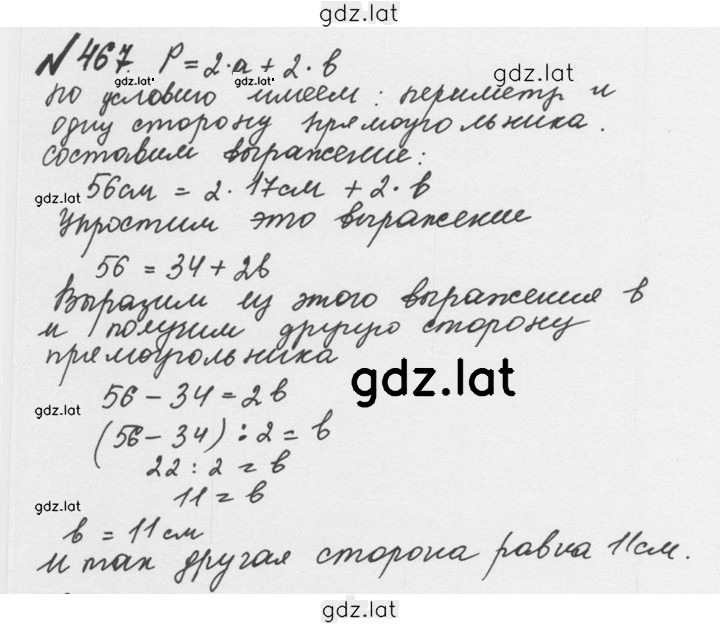 gdz.lat
№467. P = 2·a + 2·b
gdz.lat gdz.lat gdz.lat
по условию имеем: периметр и
одну сторону прямоугольника.
составим выражение:
gdz.lat 56см = 2·17см + 2·b
Упростим это выражение
56 = 34 + 2b
Выразим из этого выражения b
и получим другую сторону
прямоугольника
gdz.lat
56 - 34 = 2b
gdz.lat
(56 - 34) : 2 = b
22 : 2 = b
11 = b
gdz.lat
b = 11см
И так другая сторона равна 11см.
gdz.lat